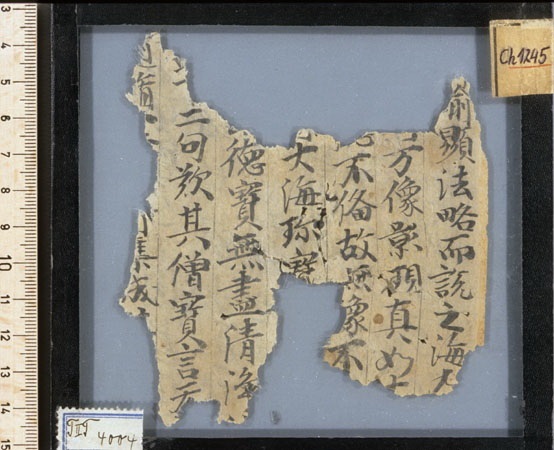 顯法略而說之海
像影現真如
不俻故無象不
大海珎寶
德寶無盡清淨
二句歎其僧寶言无
集成
Ch 1245
TIIT 4004
3
4
5
6
7
8
9
10
11
12
13
14
15